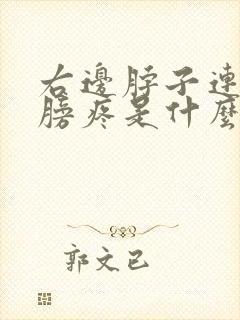 右邊脖子連
膀疼是什麼
郭文已